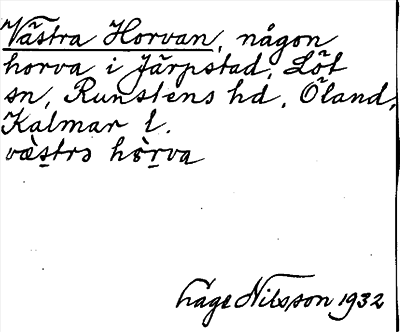 Västra Horvan, någon
horva i Järpstad, Löt
sn, Runstens hd, Öland,
Kalmar l.
væ̀strə hɔ̀rva
Åge Nilsson 1932